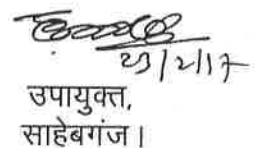 23/2/17
उपायुक्त,
साहेबगंज।